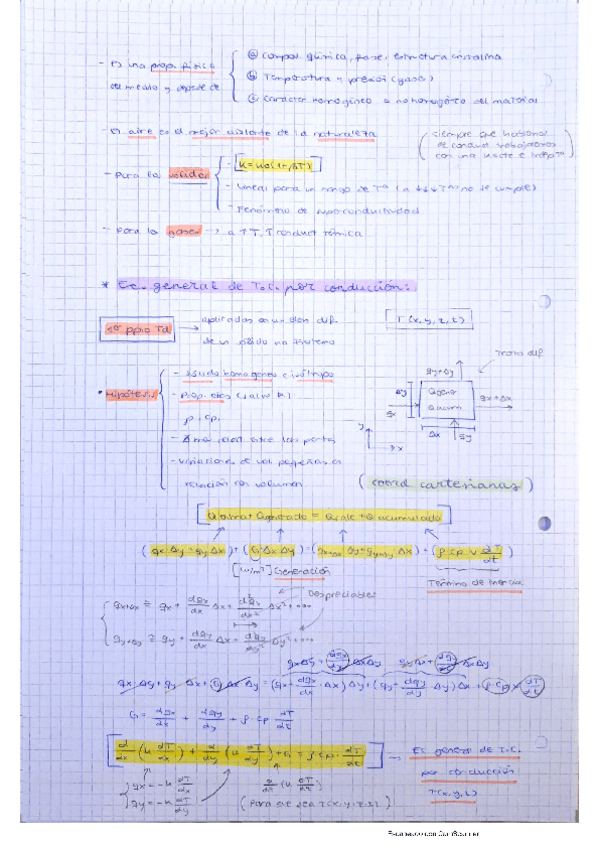 - Es una prop. física del medio y depende de
ⓐ Compos. química, fase, estructura cristalina
ⓑ Temperatura y presión (gases)
ⓒ Carácter homogéneo o no homogéneo del material
- El aire es el mejor aislante de la naturaleza
- Para los sólidos
- K = K0(1+βT)
- Lineal para un rango de Tª (a ↓↓↓ Tª no se cumple)
- Fenómeno de superconductividad
- Para los gases → a ↑T, ↑ conduct térmica
* Ec. general de T.C. por conducción:
1er ppio Td → aplicados en un
de un sólido
T(x,y,z,t)
* Hipótesis
- sólido homogéneo e isótropo
- Prop. ctes (salvo K)
ρ, cp.
- variaciones de vol pequeñas en
relación con volumen
qy+Δy
Δy
qx
qx+Δx
Δx
qy
y
x
(coord cartesianas)
Qentra + Qgenerado = Qsale + Qacumulado
(qx Δy + qy Δx) + (G Δx Δy) = (qx+Δx Δy + qy+Δy Δx) + (ρ cp V dT/dt)
[W/m³] Generación
Término de inercia
Despreciables
qx+Δx ≅ qx + dqx/dx Δx + d²qx/dx² Δx² + ...
qy+Δy ≅ qy + dqy/dy Δy + d²qy/dy² Δy² + ...
qx Δy + qy Δx + G Δx Δy = (qx + dqx/dx Δx) Δy + (qy + dqy/dy Δy) Δx + ρ cp V dT/dt
G = dqx/dx + dqy/dy + ρ cp dT/dt
[d/dx (K dT/dx) + d/dy (K dT/dy) + G = ρ cp dT/dt] → Ec general de T.C.
por conducción
T(x,y,t)
qx = -K dT/dx
qy = -K dT/dy
d/dz (K dT/dz)
(para que sea T(x,y,z,t))